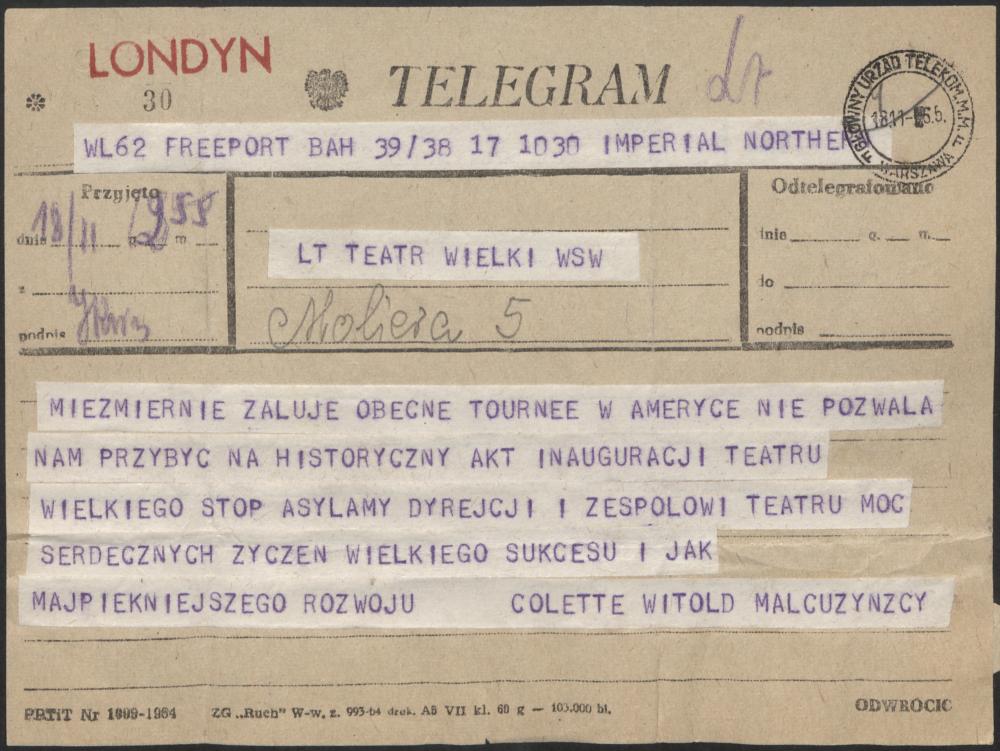 LONDYN
30
TELEGRAM
Lt
GŁÓWNY URZĄD TELEKOM. M.M.
18.11-65.
WARSZAWA
WL62 FREEPORT BAH 39/38 17 1030 IMPERIAL NORTHE
Przyjęto
Odtelegrafowano
dnia 18/11 g. 955 m
dnia g. m.
LT TEATR WIELKI WSW
z
do
Moliera 5
podpis
podpis
MIEZMIERNIE ZALUJE OBECNE TOURNEE W AMERYCE NIE POZWALA
NAM PRZYBYC NA HISTORYCZNY AKT INAUGURACJI TEATRU
WIELKIEGO STOP ASYLAMY DYREJCJI I ZESPOLOWI TEATRU MOC
SERDECZNYCH ZYCZEN WIELKIEGO SUKCESU I JAK
MAJPIEKNIEJSZEGO ROZWOJU COLETTE WITOLD MALCUZYNZCY
PPTiT Nr 1099-1964 ZG „Ruch" W-w, z. 993-64 druk. A5 VII kl. 60 g — 103.000 bl.
ODWRÓCIĆ